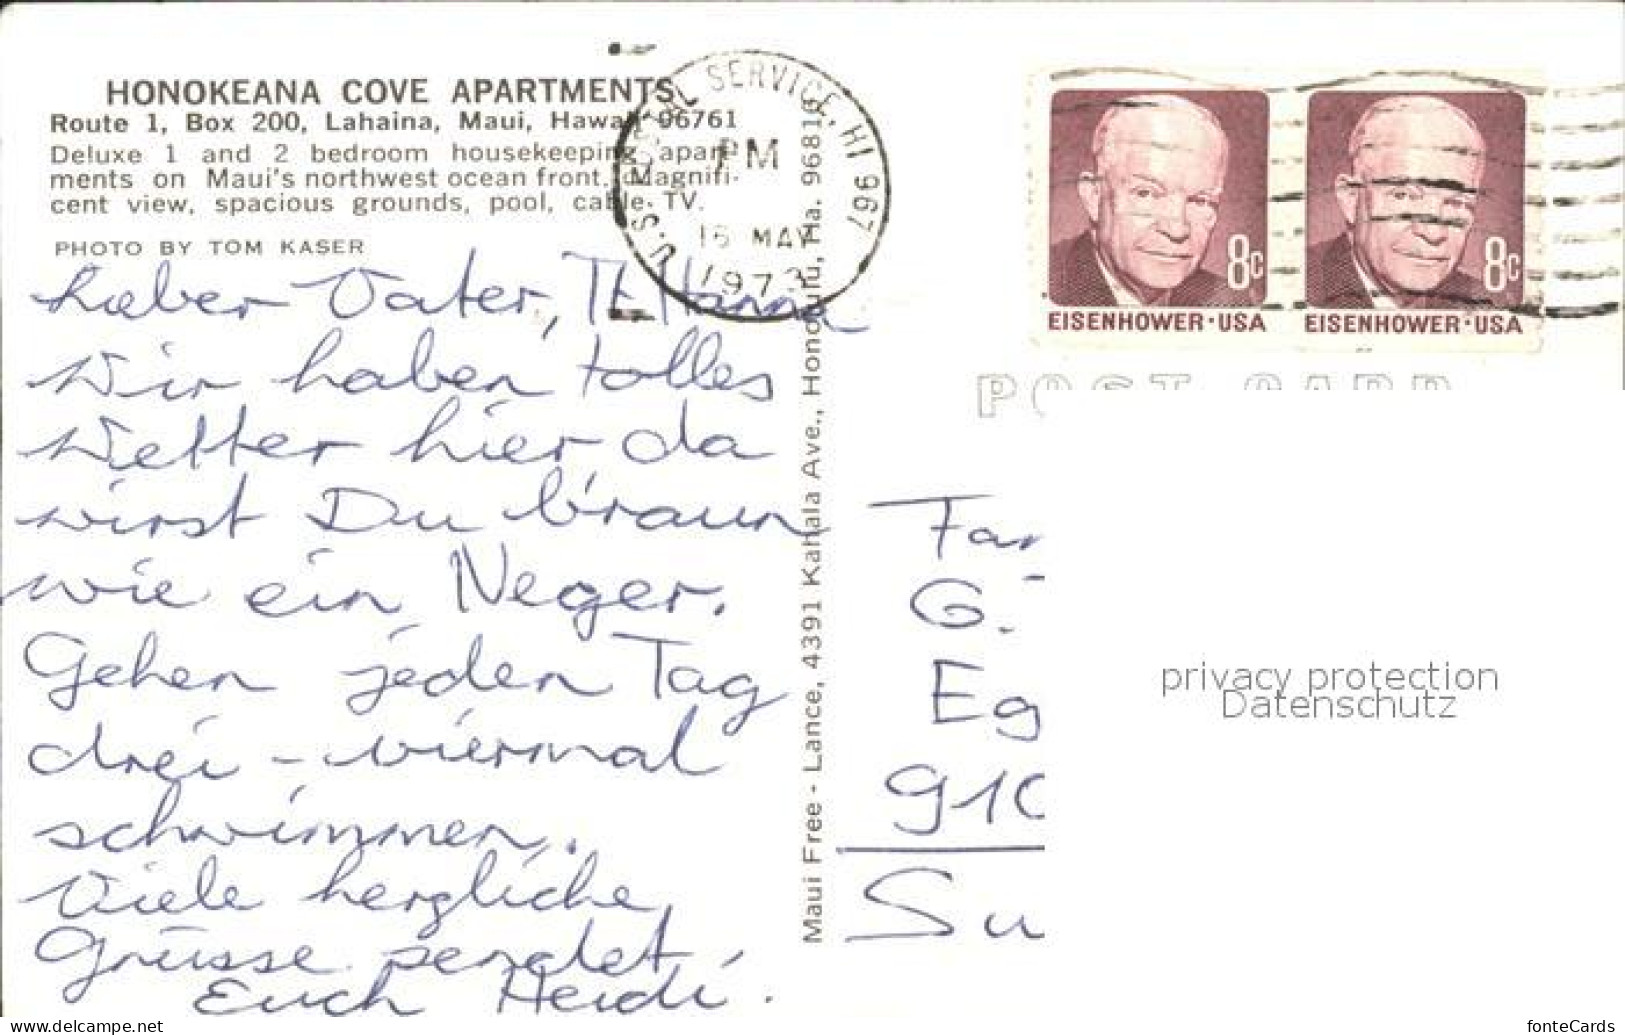 HONOKEANA COVE APARTMENTS
Route 1, Box 200, Lahaina, Maui, Hawaii 96761
Deluxe 1 and 2 bedroom housekeeping apart-
ments on Maui's northwest ocean front. Magnifi-
cent view, spacious grounds, pool, cable TV.
PHOTO BY TOM KASER
U.S. POSTAL SERVICE, HI 967
PM
MAY
197
8c
EISENHOWER·USA
8c
EISENHOWER·USA
POST CARD
Lieber Vater, Hanna
Wir haben tolles
Wetter hier da
wirst Du braun
wie ein Neger.
Gehen jeden Tag
drei - viermal
schwimmen.
Viele herzliche
Grüsse sendet
Euch Heidi.
Maui Free - Lance, 4391 Kahala Ave., Honolulu, Ha. 96815
Fam
G.
Eg
910
Su
privacy protection
Datenschutz
www.delcampe.net
fonteCards